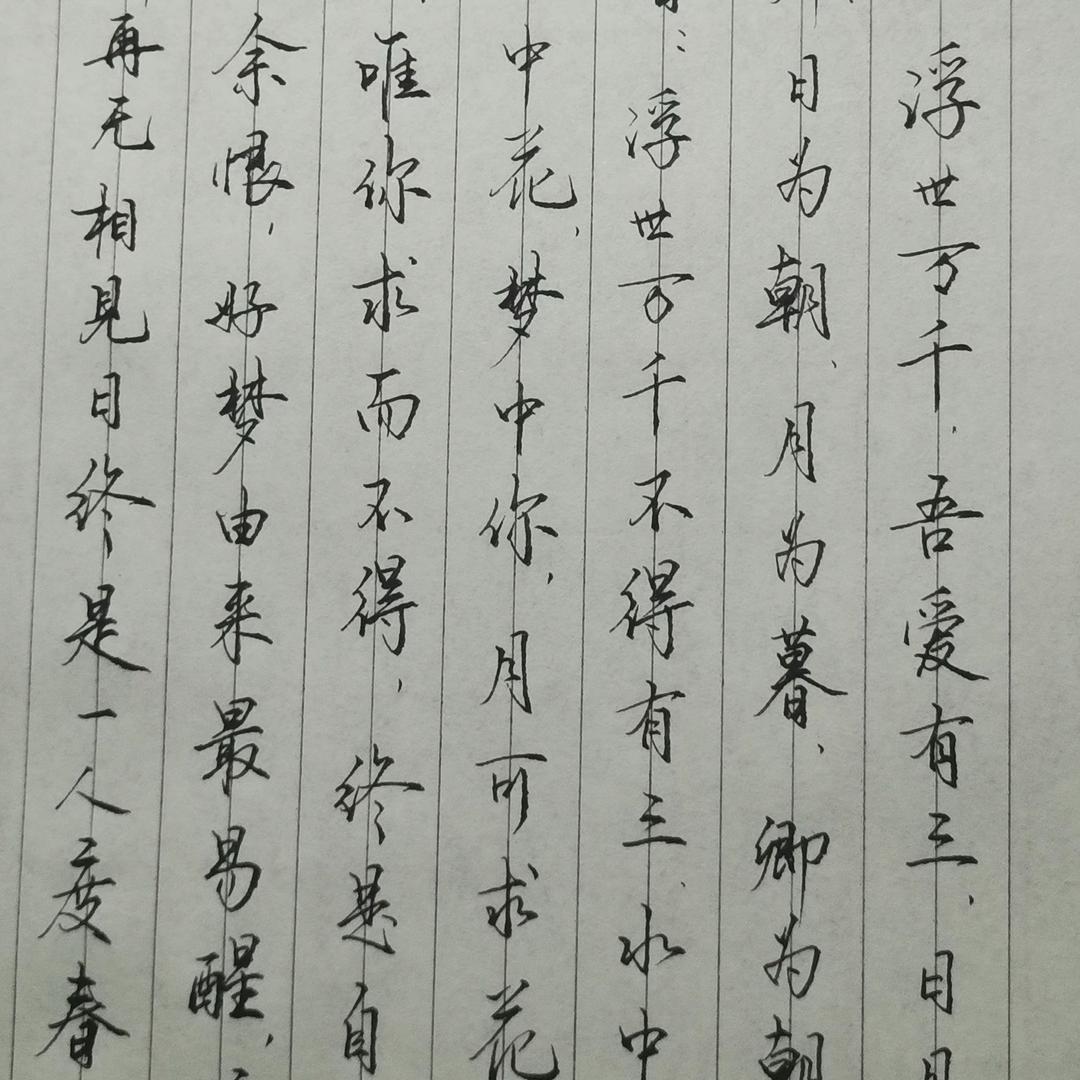 浮世万千，吾爱有三，日月
日为朝，月为暮，卿为朝
：浮世万千不得有三，水中
中花，梦中你，月可求花
唯你求而不得，终是自
余恨，好梦由来最易醒，
再无相见日终是一人度春